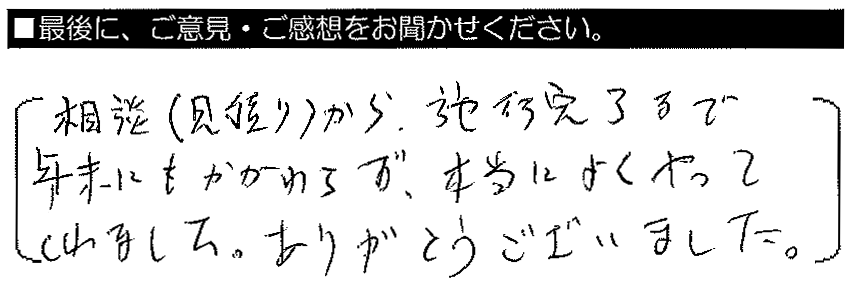 ■最後に、ご意見・ご感想をお聞かせください。
相談(見積り)から、施行完了まで
年末にもかかわらず、本当によくやって
くれました。ありがとうございました。